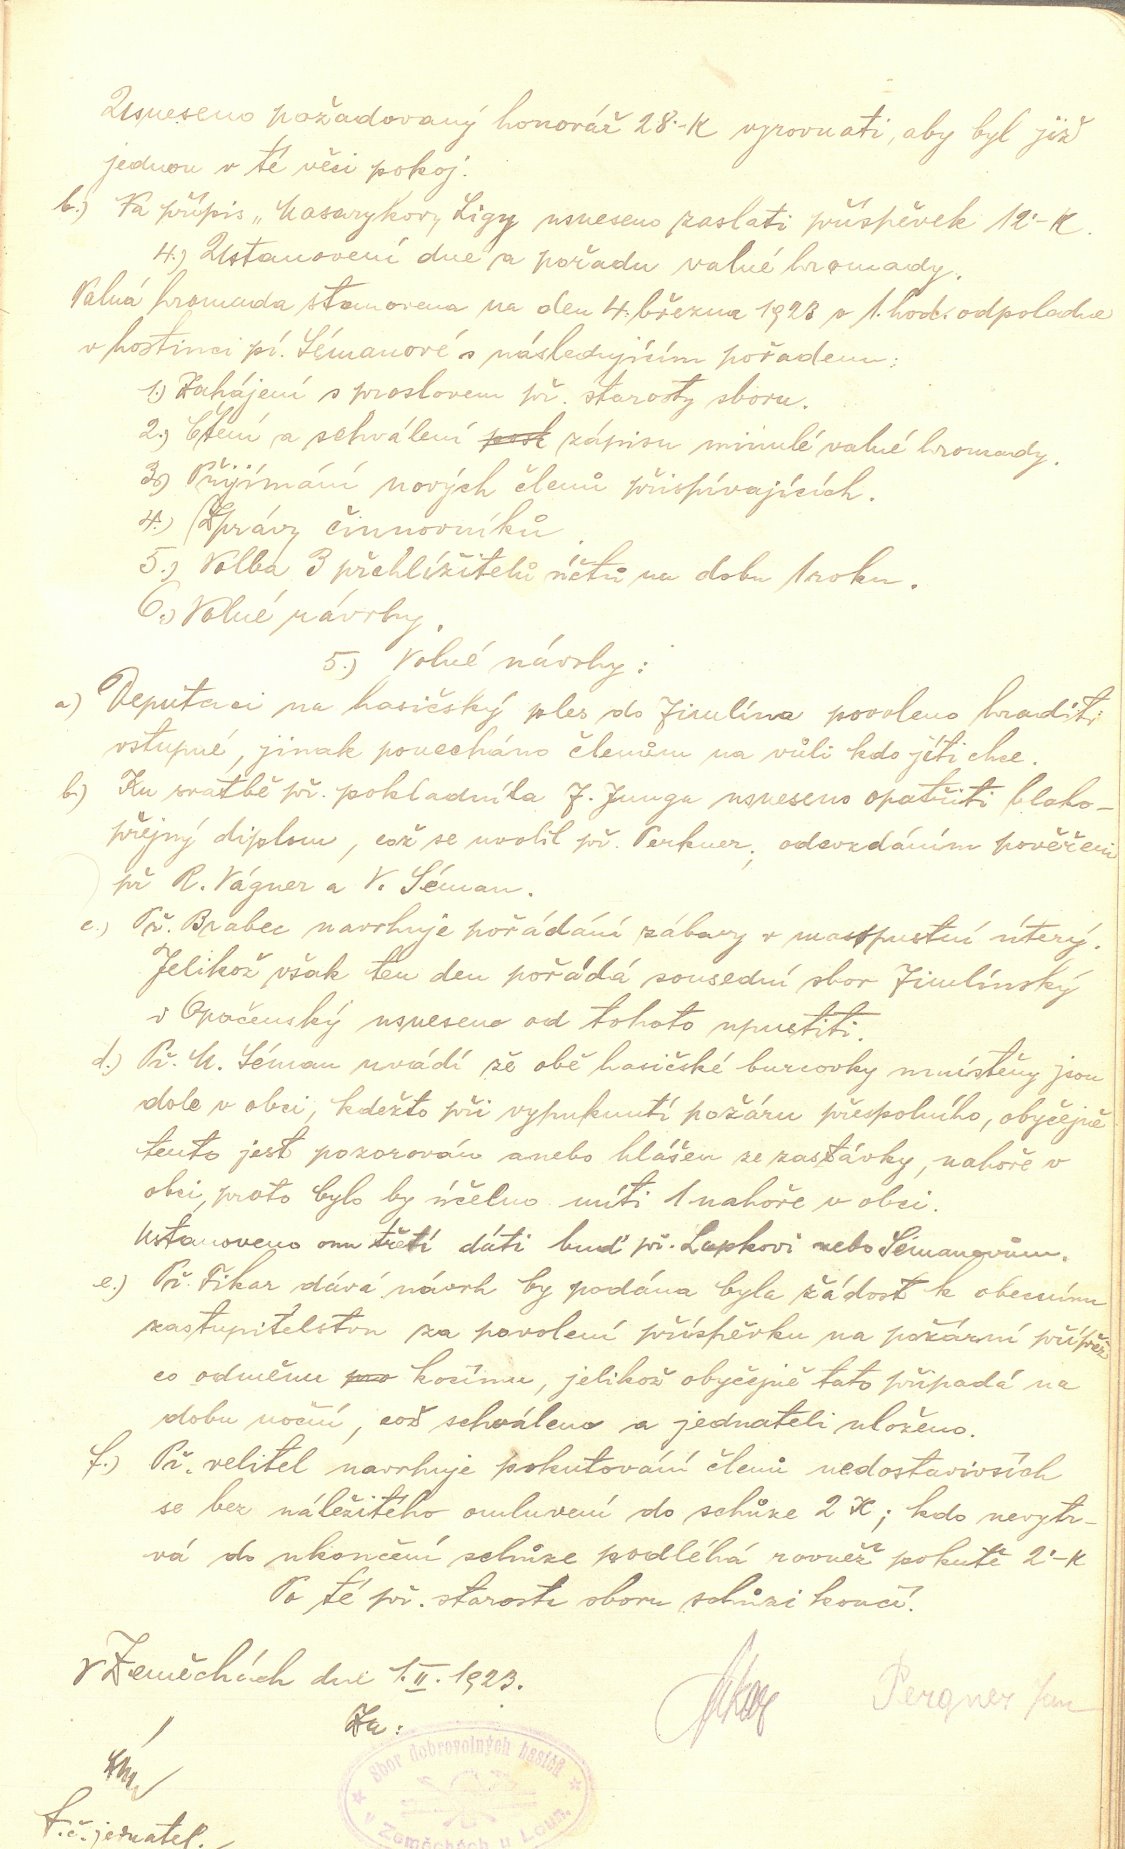 Usneseno požadovaný honorář 28·-K vyrovnati, aby byl již
jednou v té věci pokoj.
b.) Na přípis „Masarykovy Ligy usneseno zaslati příspěvek 12·-K.
4.) Ustanovení dne a pořadu valné hromady.
Valná hromada stanovena na den 4. března 1923 o 1. hod. odpoledne
v hostinci pí. Sémanové s následujícím pořadem:
1.) Zahájení s proslovem př. starosty sboru.
2.) Čtení a schválení zápisu minulé valné hromady.
3.) Přijímání nových členů přispívajících.
4.) Zprávy činnovníků.
5.) Volba 3 přehlížitelů účtů na dobu 1 roku.
6.) Volné návrhy.
5.) Volné návrhy:
a) Deputaci na hasičský ples do Jimlína povoleno hraditi
vstupné, jinak ponecháno členům na vůli kdo jíti chce.
b.) Ku svatbě př. pokladníka J. Junga usneseno opatřiti blaho-
přejný diplom, což se uvolil př. Perkner, odevzdáním pověřeni
př R. Vágner a V. Séman.
c.) Př. Brabec navrhuje pořádání zábavy v masopustní úterý.
Jelikož však ten den pořádá sousední sbor Jimlínský
i Opočenský usneseno od tohoto upustiti.
d.) Př. M. Séman uvádí že obě hasičské burcovky umístěny jsou
dole v obci, kdežto při vypuknutí požáru přespolního, obyčejně
tento jest pozorován anebo hlášen ze zastávky, nahoře v
obci, proto bylo by účelno míti 1 nahoře v obci.
Ustanoveno onu třetí dáti buď př. Lapkovi nebo Sémanovům.
e.) Př. Fikar dává návrh by podána byla žádost k obecnímu
zastupitelstvu za povolení příspěvku na požární přípřež
co odměnu kočímu, jelikož obyčejně tato připadá na
dobu noční, což schváleno a jednateli uloženo.
f.) Př. velitel navrhuje pokutování členů nedostavivších
se bez náležitého omluvení do schůze 2 K; kdo nevytr-
vá do ukončení schůze podléhá rovněž pokutě 2·-K
Po té př. starosta sboru schůzi končí.
V Zeměchách dne 1.II.1923.
Za:
Fikar Pergner Jan
Sbor dobrovolných hasičů
v Zeměchách u Loun.
t.č. jednatel.